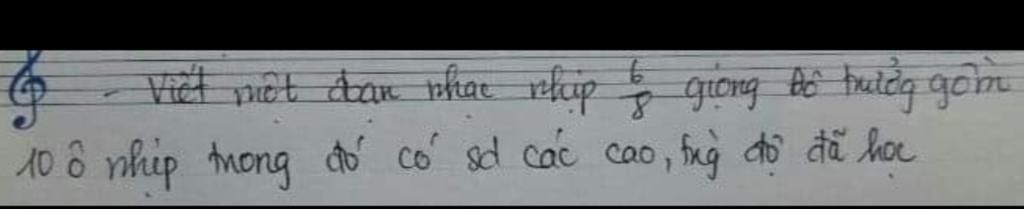 - Viết một đoạn nhạc nhịp 6/8 giọng Đô trưởng gồm
10 ô nhịp trong đó có sd các cao, trg độ đã học